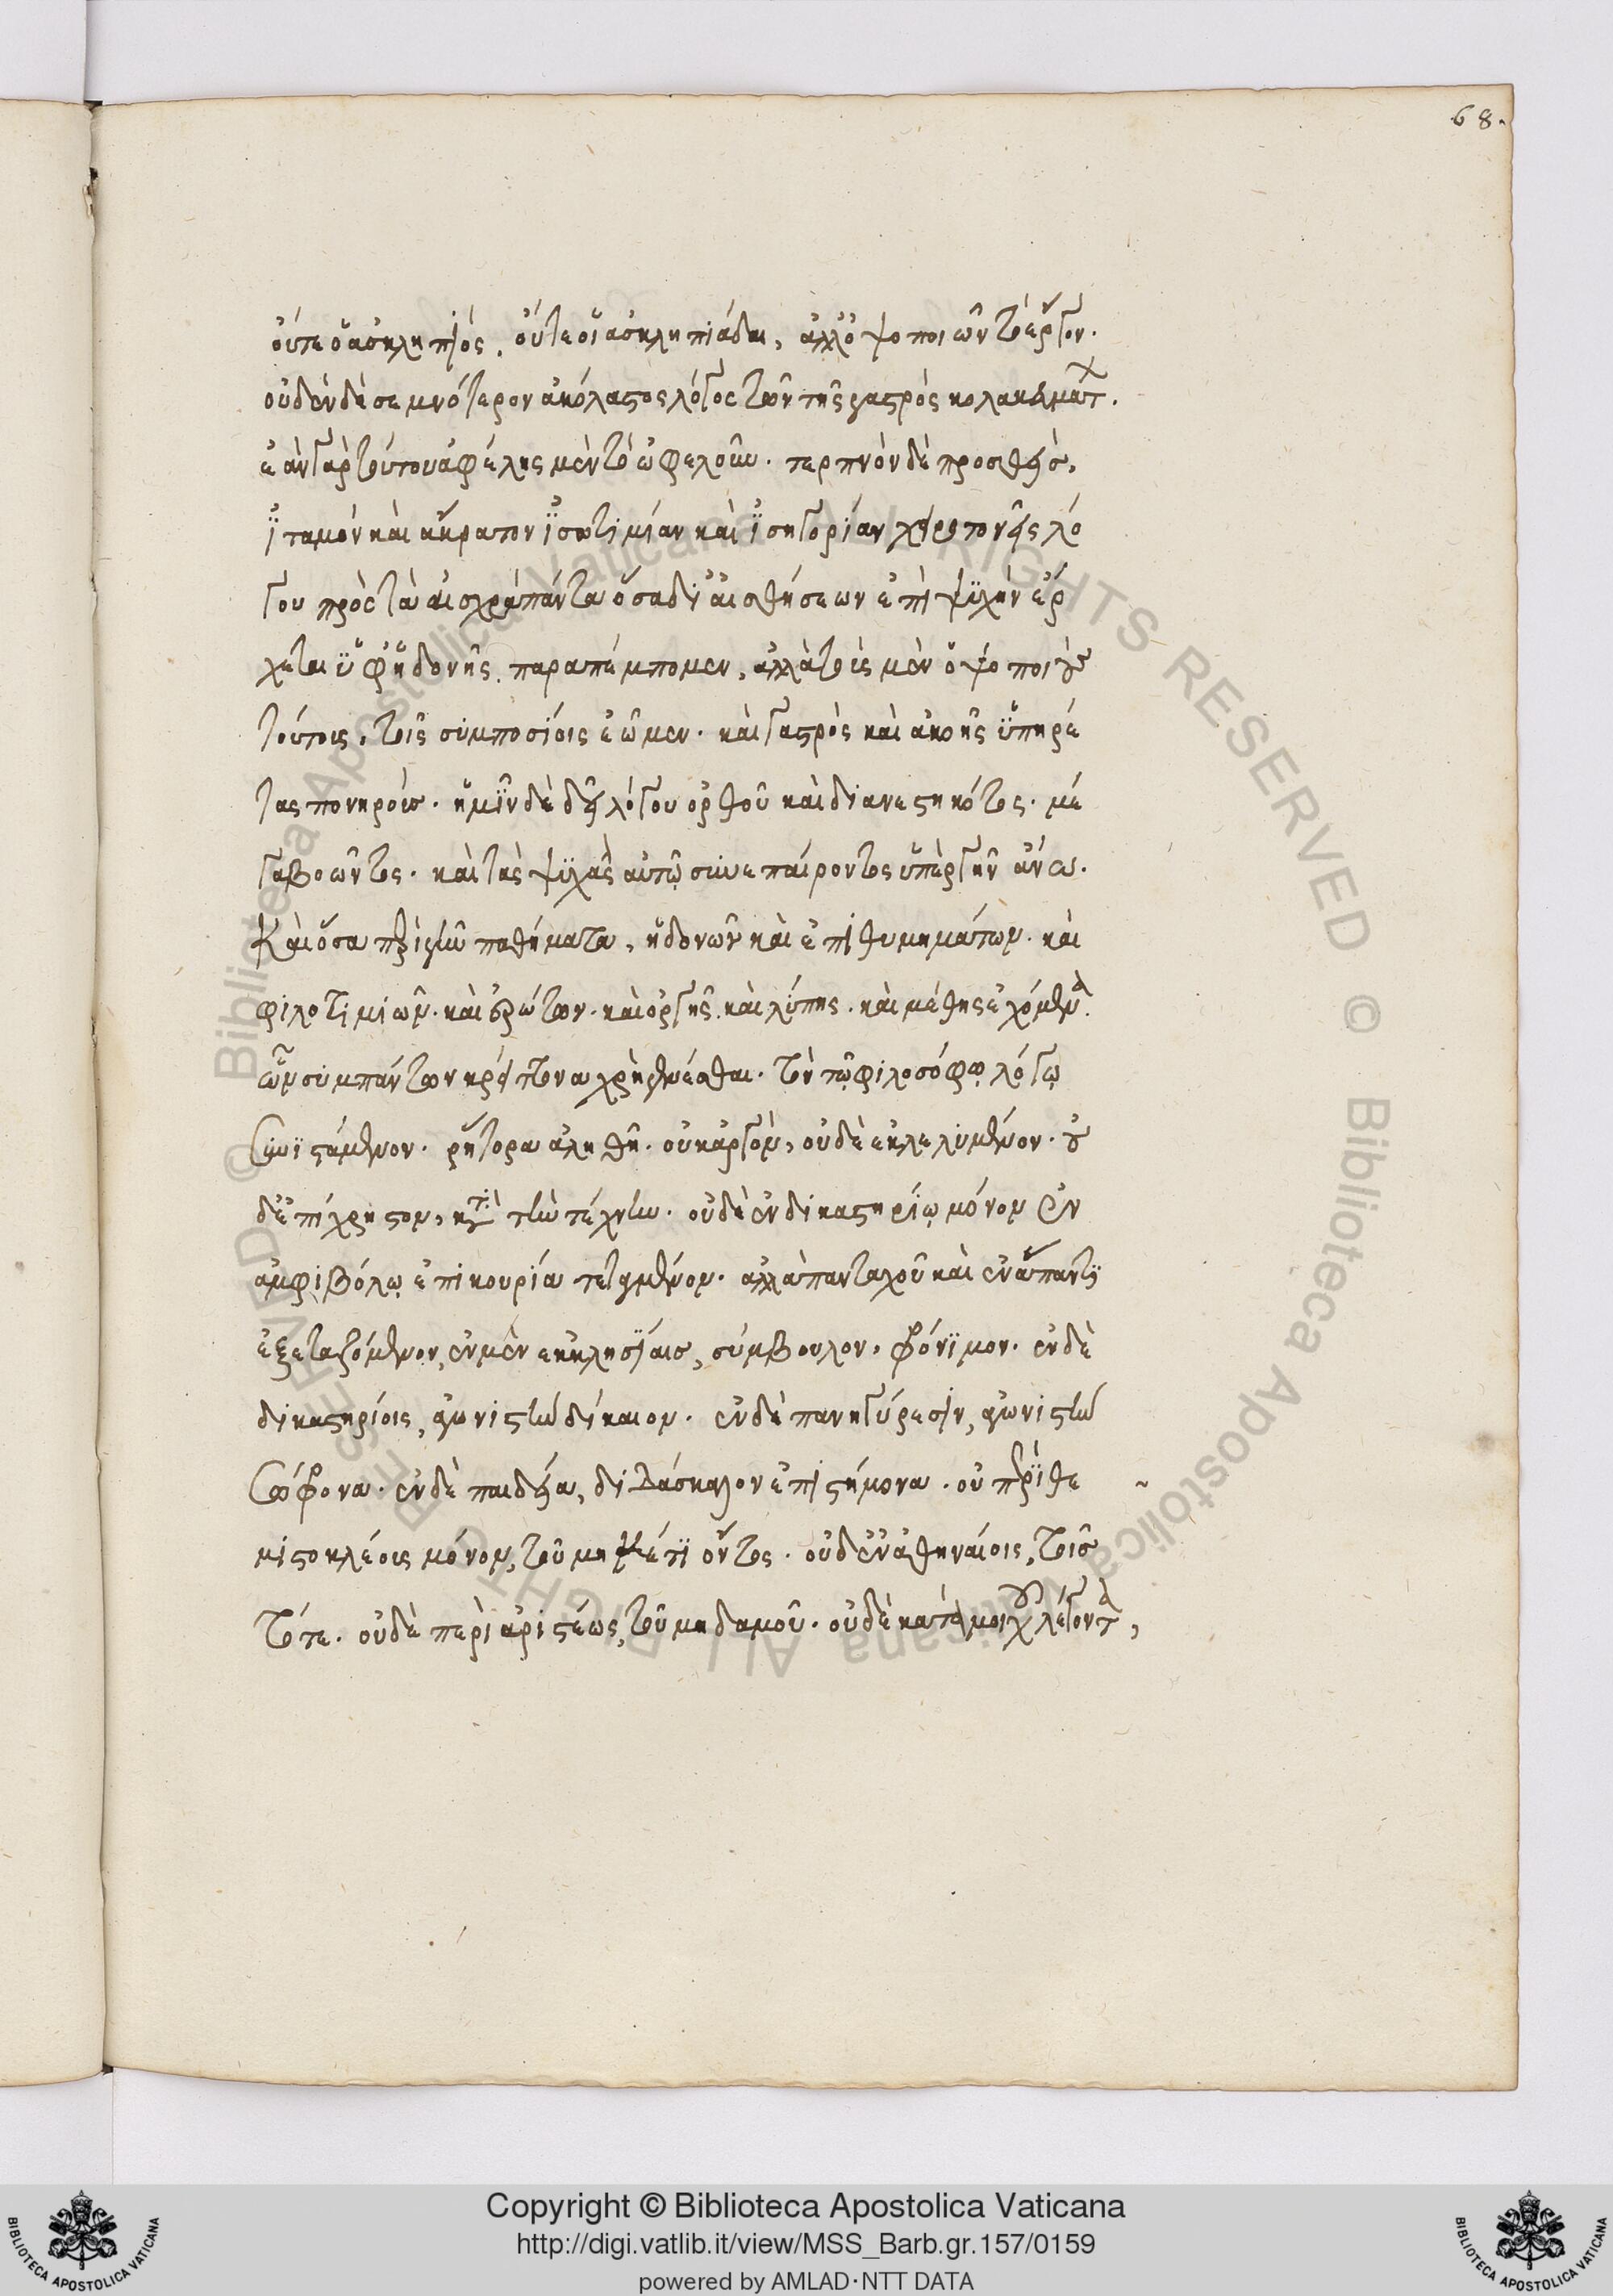 68.
οὔτε ὁ ἀσκληπιός. οὔτε οἱ ἀσκληπιάδαι, ἀλλ' ὀψοποιῶν τὸ ἔργον.
οὐδὲν δὲ σεμνότερον ἀκόλαστος λόγος τῶν τῆς γαστρὸς κολακευμάτ(ων).
ἐὰν γὰρ τούτου ἀφέλης μὲν τὸ ὠφελοῦν. τερπνὸν δὲ προσθῇσ,
ἰταμὸν καὶ ἄκρατον ἰσωτιμίαν καὶ ἰσηγορίαν χειροτονεῖς λό
γου πρὸς τὰ αἰσχρὰ πάντα ὅσα δι' αἰσθήσεων ἐπὶ ψυχὴν ἔρ
χεται ὑφ' ἡδονῆς παραπέμπομεν, ἀλλὰ τοῖς μὲν ὀψοποιοὺς
τούτοις, τοῖς συμποσίοις ἐῶμεν. καὶ γαστρὸς καὶ ἀκοῆς ὑπηρέ
τας πονηρούσ. ἡμῖν δὲ δεῖ λόγου ὀρθοῦ καὶ διανεστηκότος. μέ
γα βοῶντος. καὶ τὰς ψυχὰς αὐτῷ συνεπαίροντος ὑπὲρ γῆν ἄνω.
Καὶ ὅσα περὶ γῆν παθήματα, ἡδονῶν καὶ ἐπιθυμημάτων. καὶ
φιλοτιμιῶν. καὶ ἐρώτων. καὶ ὀργῆς. καὶ λύπης. καὶ μέθης ἐχόμενα.
ὧν συμπάντων κρείττονα χρὴ γενέσθαι. τὸν τῷ φιλοσόφῳ λόγῳ
συνιστάμενον. ῥήτορα ἀληθῆ. οὐκ ἀργόν, οὐδὲ ἐκλελυμένον. οὐ
δὲ ἐπίχρηστον, κατὰ τὴν τέχνην. οὐδὲ ἐν δικαστηρίῳ μόνον ἐν
ἀμφιβόλῳ ἐπικουρία τεταγμένον. ἀλλὰ πανταχοῦ καὶ ἐν ἅπαντι
ἐξεταζόμενον, ἐν μὲν ἐκκλησίαισ, σύμβουλον, φρόνιμον. ἐν δὲ
δικαστηρίοις, ἀγωνιστὴν δίκαιον. ἐν δὲ πανηγύρεσιν, ἀγωνιστὴν
σώφρονα. ἐν δὲ παιδεία, διδάσκαλον ἐπιστήμονα. οὐ περὶ θε
μιστοκλέους μόνον, τοῦ μηκέτι ὄντος. οὐδ' ἐν ἀθηναίοις, τοῖσ
τότε. οὐδὲ περὶ ἀριστέως, τοῦ μηδαμοῦ. οὐδὲ κατὰ μοιχοῦ λέγοντα,
Copyright © Biblioteca Apostolica Vaticana
http://digi.vatlib.it/view/MSS_Barb.gr.157/0159
powered by AMLAD·NTT DATA